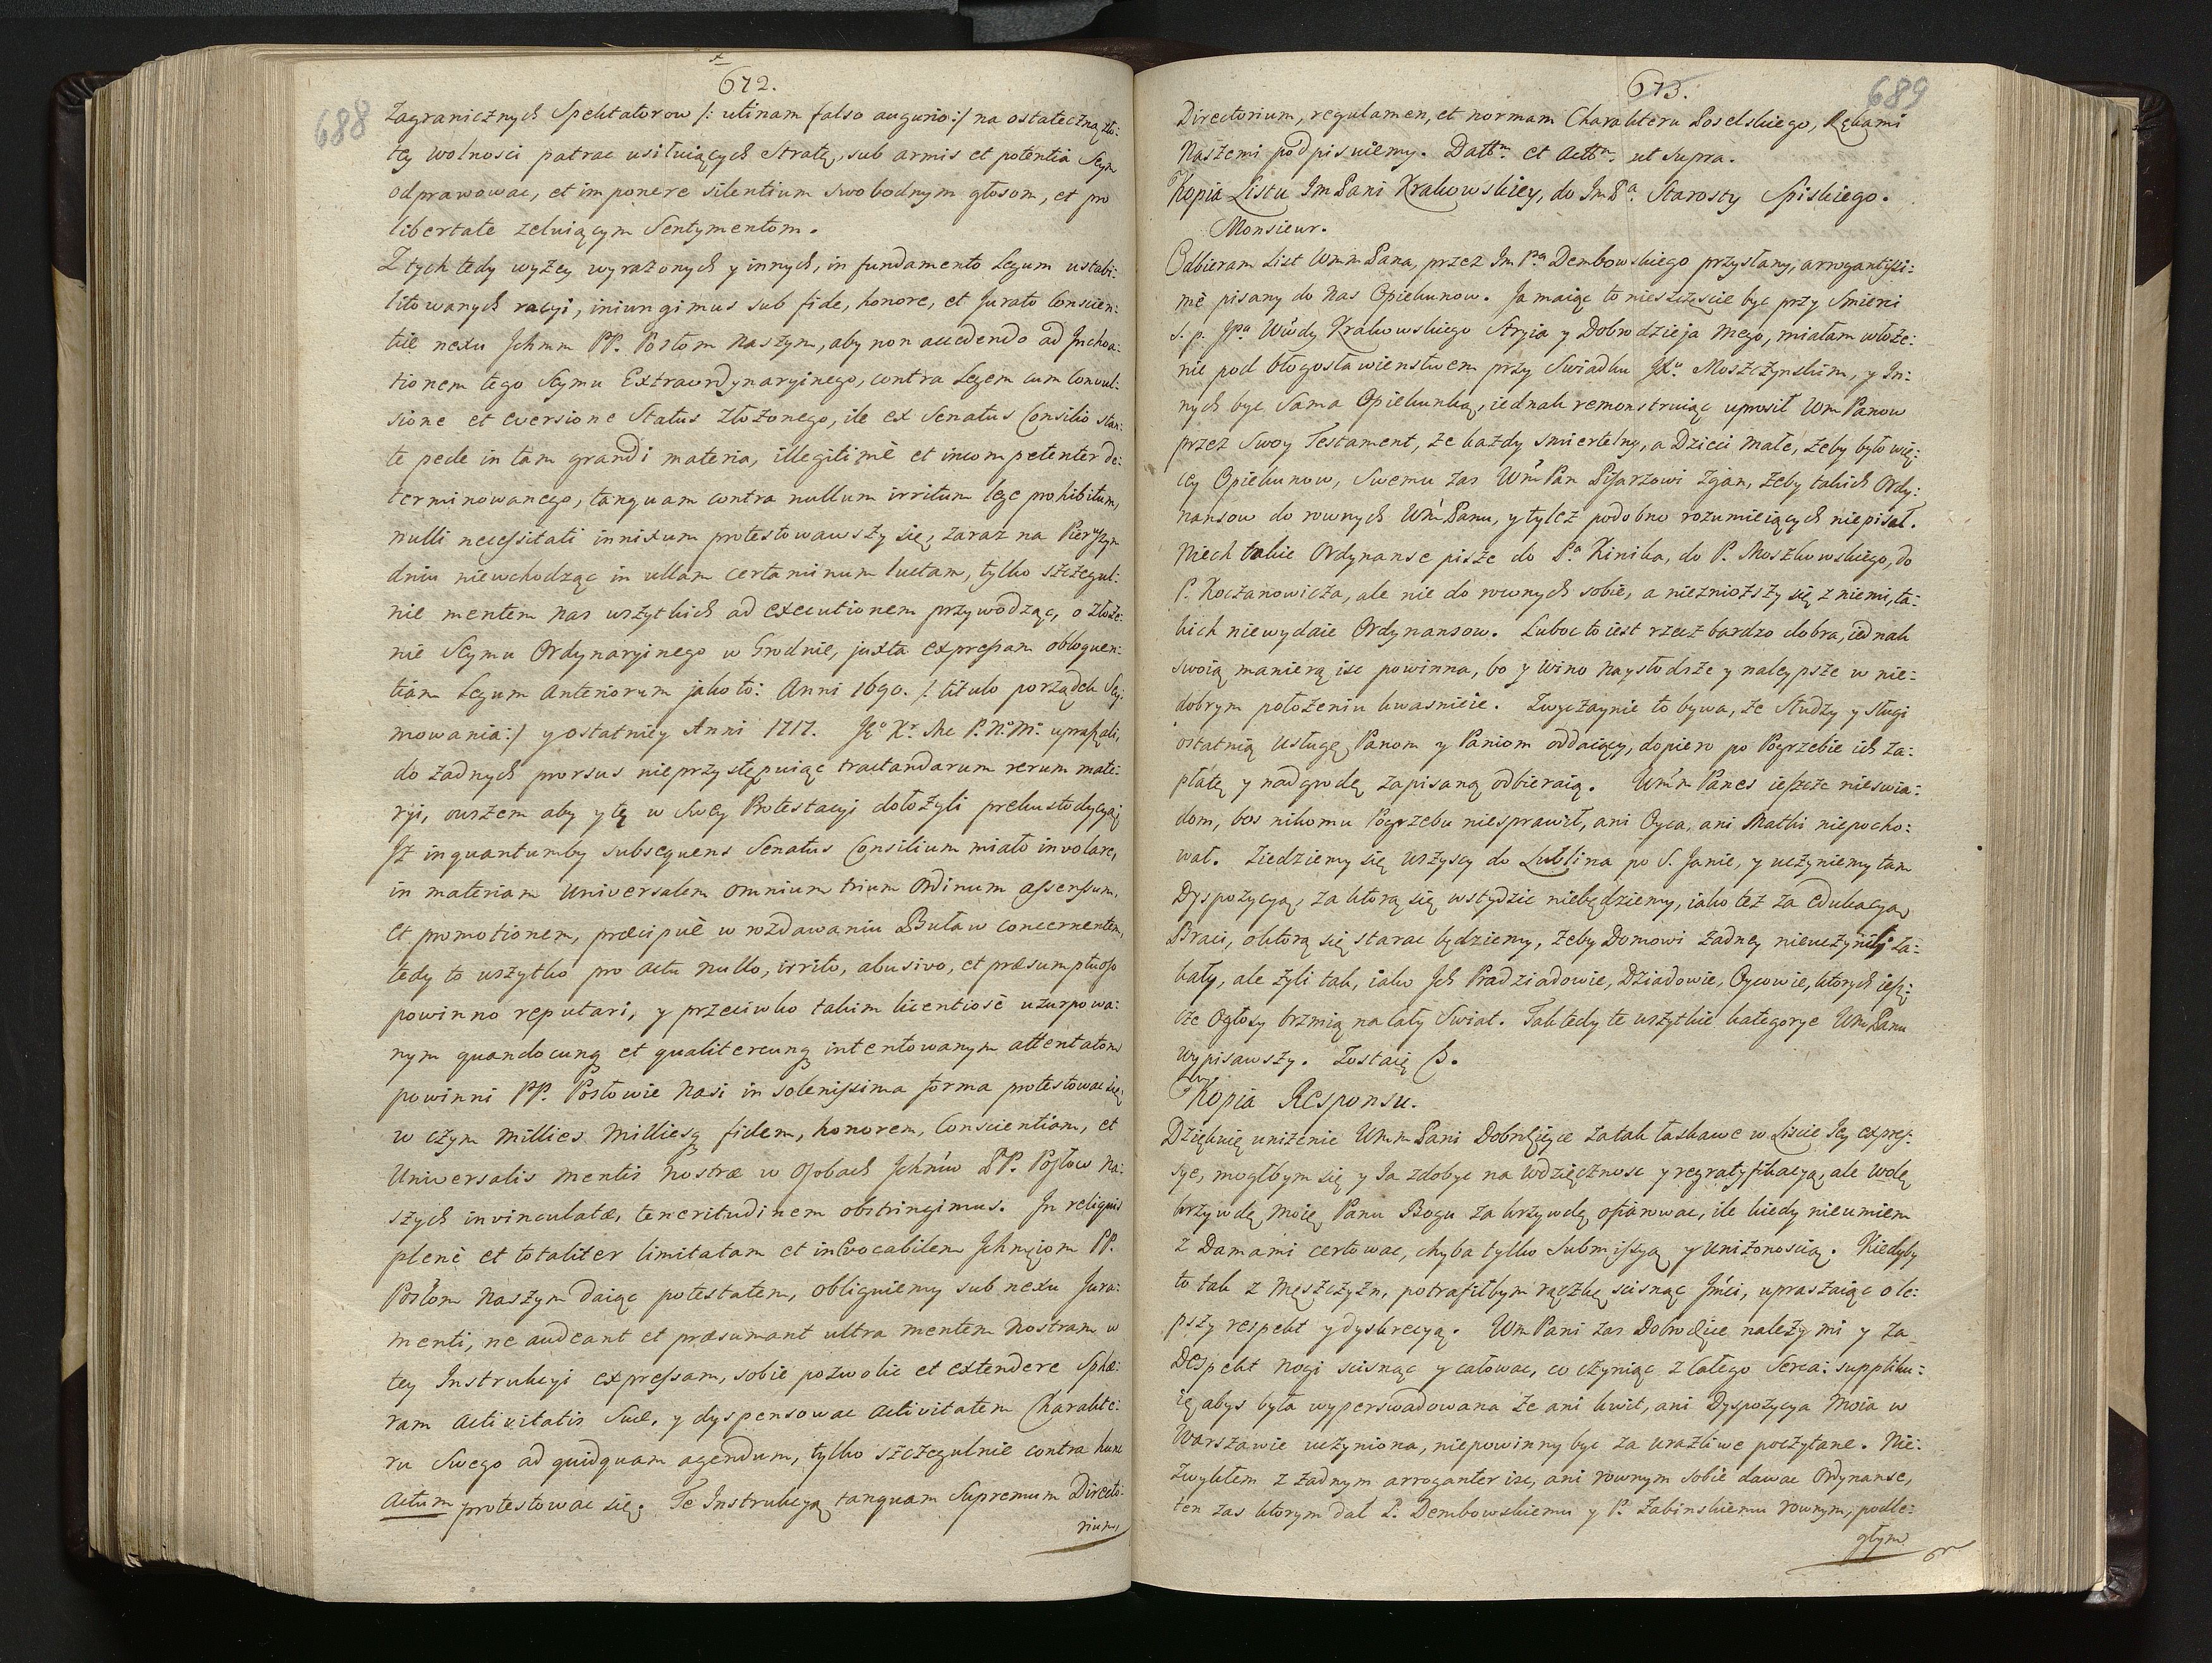 672.
688
Zagranicznych Spektatorow /: utinam falso augurio:/ na ostateczną zło:
tey wolnosci patrac usiłuiących Stratę, sub armis et potentia Seym
odprawowac, et imponere silentium swobodnym głosom, et pro
libertate zeluiącym Sentymentom.
Z tych tedy wyżey wyrażonych y innych, in fundamento Legum ustabi:
litowanych racyi, iniungimus sub fide, honore, et Jurato Conscien:
tiæ nexu Ichmm PP. Posłom Naszym, aby non accedendo ad Inchoa:
tionem tego Seymu Extraordynaryinego, contra Legem cum Convul:
sione et eversione Status złożonego, ile ex Senatus Consilio stan:
te pede in tam grandi materia, illegitimè et incompetenter de:
terminowanego, tanquam contra nullum irritum lege prohibitum,
nulli necessitati innixum protestowawszy się, zaraz na Pierwszym
dniu niewchodząc in ullam certaminum luctam, tylko szczegul:
nie mentem nas wszytkich ad executionem przywodząc, o złoże:
nie Seymu Ordynaryinego w Grodnie, juxta expressam obloquen:
tiam Legum Anteriorum jako to: Anni 1690. /: titulo porządek Sey:
mowania:/ y ostatniey Anni 1717. Jgo Kr. Mc P. N. M. upraszali,
do żadnych prorsus nieprzystępuiąc tractandarum rerum mate:
ryi, owszem aby y tę w Swey Protestacyi dołożyli prekustodycyą,
Iż inquantumby subsequens Senatus Consilium miało involare,
in materiam Universalem omnium trium Ordinum assensum,
et promotionem, præcipuè w rozdawaniu Buław concernentem,
tedy to wszytko pro actu nullo, irrito, abusivo, et præsumptuoso
powinno reputari, y przeciwko takim licentiosè uzurpowa:
nym quandocunq et qualitercunq intentowanym attentatom
powinni PP. Posłowie Nasi in solenissima forma protestowac się,
w czym Millies Milliesq fidem, honorem, Conscientiam, et
Universalis mentis nostræ w Osobach Ichmw PP. Posłow Na:
szych invinculatæ, teneritudinem obstringimus. In reliquis
plenè et totaliter limitatam et inevocabilem Ichmciom PP.
Posłom Naszym daiąc potestatem, obliguiemy sub nexu Jura:
menti, ne audeant et præsumant ultra mentem Nostram w
tey Instrukcyi expressam, sobie pozwolic et extendere Sphæ:
ram activitatis Suæ, y dyspensowac activitatem Charakte:
ru Swego ad quidquam agendum, tylko szczegulnie contra hunc
Actum protestowac się. Te Instrukcyą tanquam Supremum Directo:
rium,
673.
689
Directorium, regulamen, et normam Charakteru Poselskiego, Rękami
Naszemi podpisuiemy. Dattm. et Acttm. ut Supra.
Kopia Listu ImPani Krakowskiey, do ImPa. Starosty Spiskiego.
Monsieur.
Odbieram List WmmPana, przez ImPa Dembowskiego przysłany, arrogantissi:
mè pisany do Nas Opiekunow. Ja maiąc to nieszczęscie byc przy Smierci
s. p. JPa Wdy Krakowskiego Stryia y Dobrodzieja Mego, miałam włoże:
nie pod błogosławienstwem przy Swiadku JXu Moszczynskim, y In:
nych byc Sama Opiekunką, iednak remonstruiąc uprosił WmPanow
przez Swoy Testament, że każdy smiertelny, a Dzieci małe, żeby było wię:
cy Opiekunow, Swemu zas WmPan Pisarzowi zgan, żeby takich Ordy:
nansow do rownych WmPanu, y tyleż podobno rozumieiących niepisał.
Niech takie Ordynanse pisze do Pa Kinika, do P. Moszkowskiego, do
P. Koczanowicza, ale nie do rownych sobie, a nieznioższy się z niemi, ta:
kich niewydaie Ordynansow. Luboc to iest rzecz bardzo dobra, iednak
swoią manierą isc powinna, bo y wino naysłodsze y nalepsze w nie:
dobrym położeniu kwasnieie. Zwyczaynie to bywa, że Słudzy y sługi
ostatnią Usługę Panom y Paniom oddaiący, dopiero po Pogrzebie ich za:
płatę y nadgrodę zapisaną odbieraią. WmmPanes ieszcze nieswia:
dom, bos nikomu Pogrzebu niesprawił, ani Oyca, ani Matki niepocho:
wał. Ziedziemy się Wszyscy do Lublina po S. Janie, y uczyniemy tam
Dyspozycyą, za ktorą się wstydzic niebędziemy, iako też za edukacyą
Braci, oktorą się starac będziemy, żeby Domowi żadney nieuczynili za:
kały, ale żyli tak, iako Ich Pradziadowie, Dziadowie, Oycowie, ktorych iesz:
cze Ogłosy brzmią na cały Swiat. Tak tedy te wszytkie kategorye WmPanu
wypisawszy. Zostaię &.
Kopia Responsu.
Dziękuię uniżenie WmmPani Dobrodzyce zatak łaskawe w Liscie Jey expres:
sye, mogłbym się y Ja zdobyc na wdzięcznosc y regratyfikacyą, ale wolę
krzywdę moię Panu Bogu za krzywdę ofiarowac, ile kiedy nieumiem
z Damami certowac, chyba tylko Submissyą y Uniżonoscią. Kiedyby
to tak z Męszczyzn, potrafiłbym rączkę scisnąc Jmci, upraszaiąc o le:
pszy respekt y dyskrecyą. WmPani zas Dobrodzice należy mi y za
Despekt nogi scisnąc y całowac, co czyniąc z całego Serca: suppliku:
ię abys była wyperswadowana że ani kwit, ani Dyspozycya Moia w
Warszawie uczyniona, niepowinny byc za urażliwe poczytane. Nie:
zwykłem z żadnym arroganter isc, ani rownym sobie dawac Ordynanse,
ten zas ktorym dał P. Dembowskiemu y P. Żabinskiemu rownym, podle:
głym